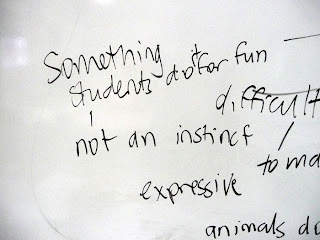 Something
students do it for fun
difficult
not an instinct
to ma
expressive
animals do